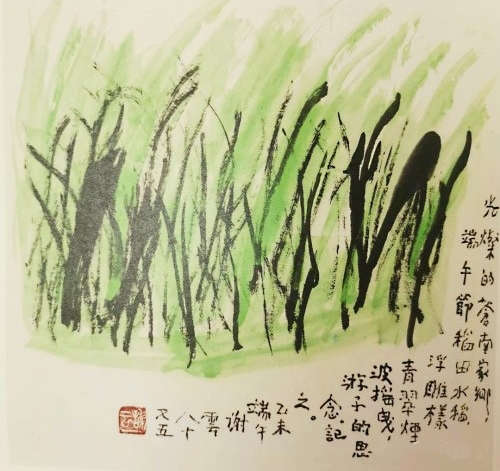 光燦的蒼南家鄉，
端午節稻田水稻
浮雕樣
青翠煙
波搖曳，
游子的思
念。記
之。
乙未
端午
謝
雲
八十
又五